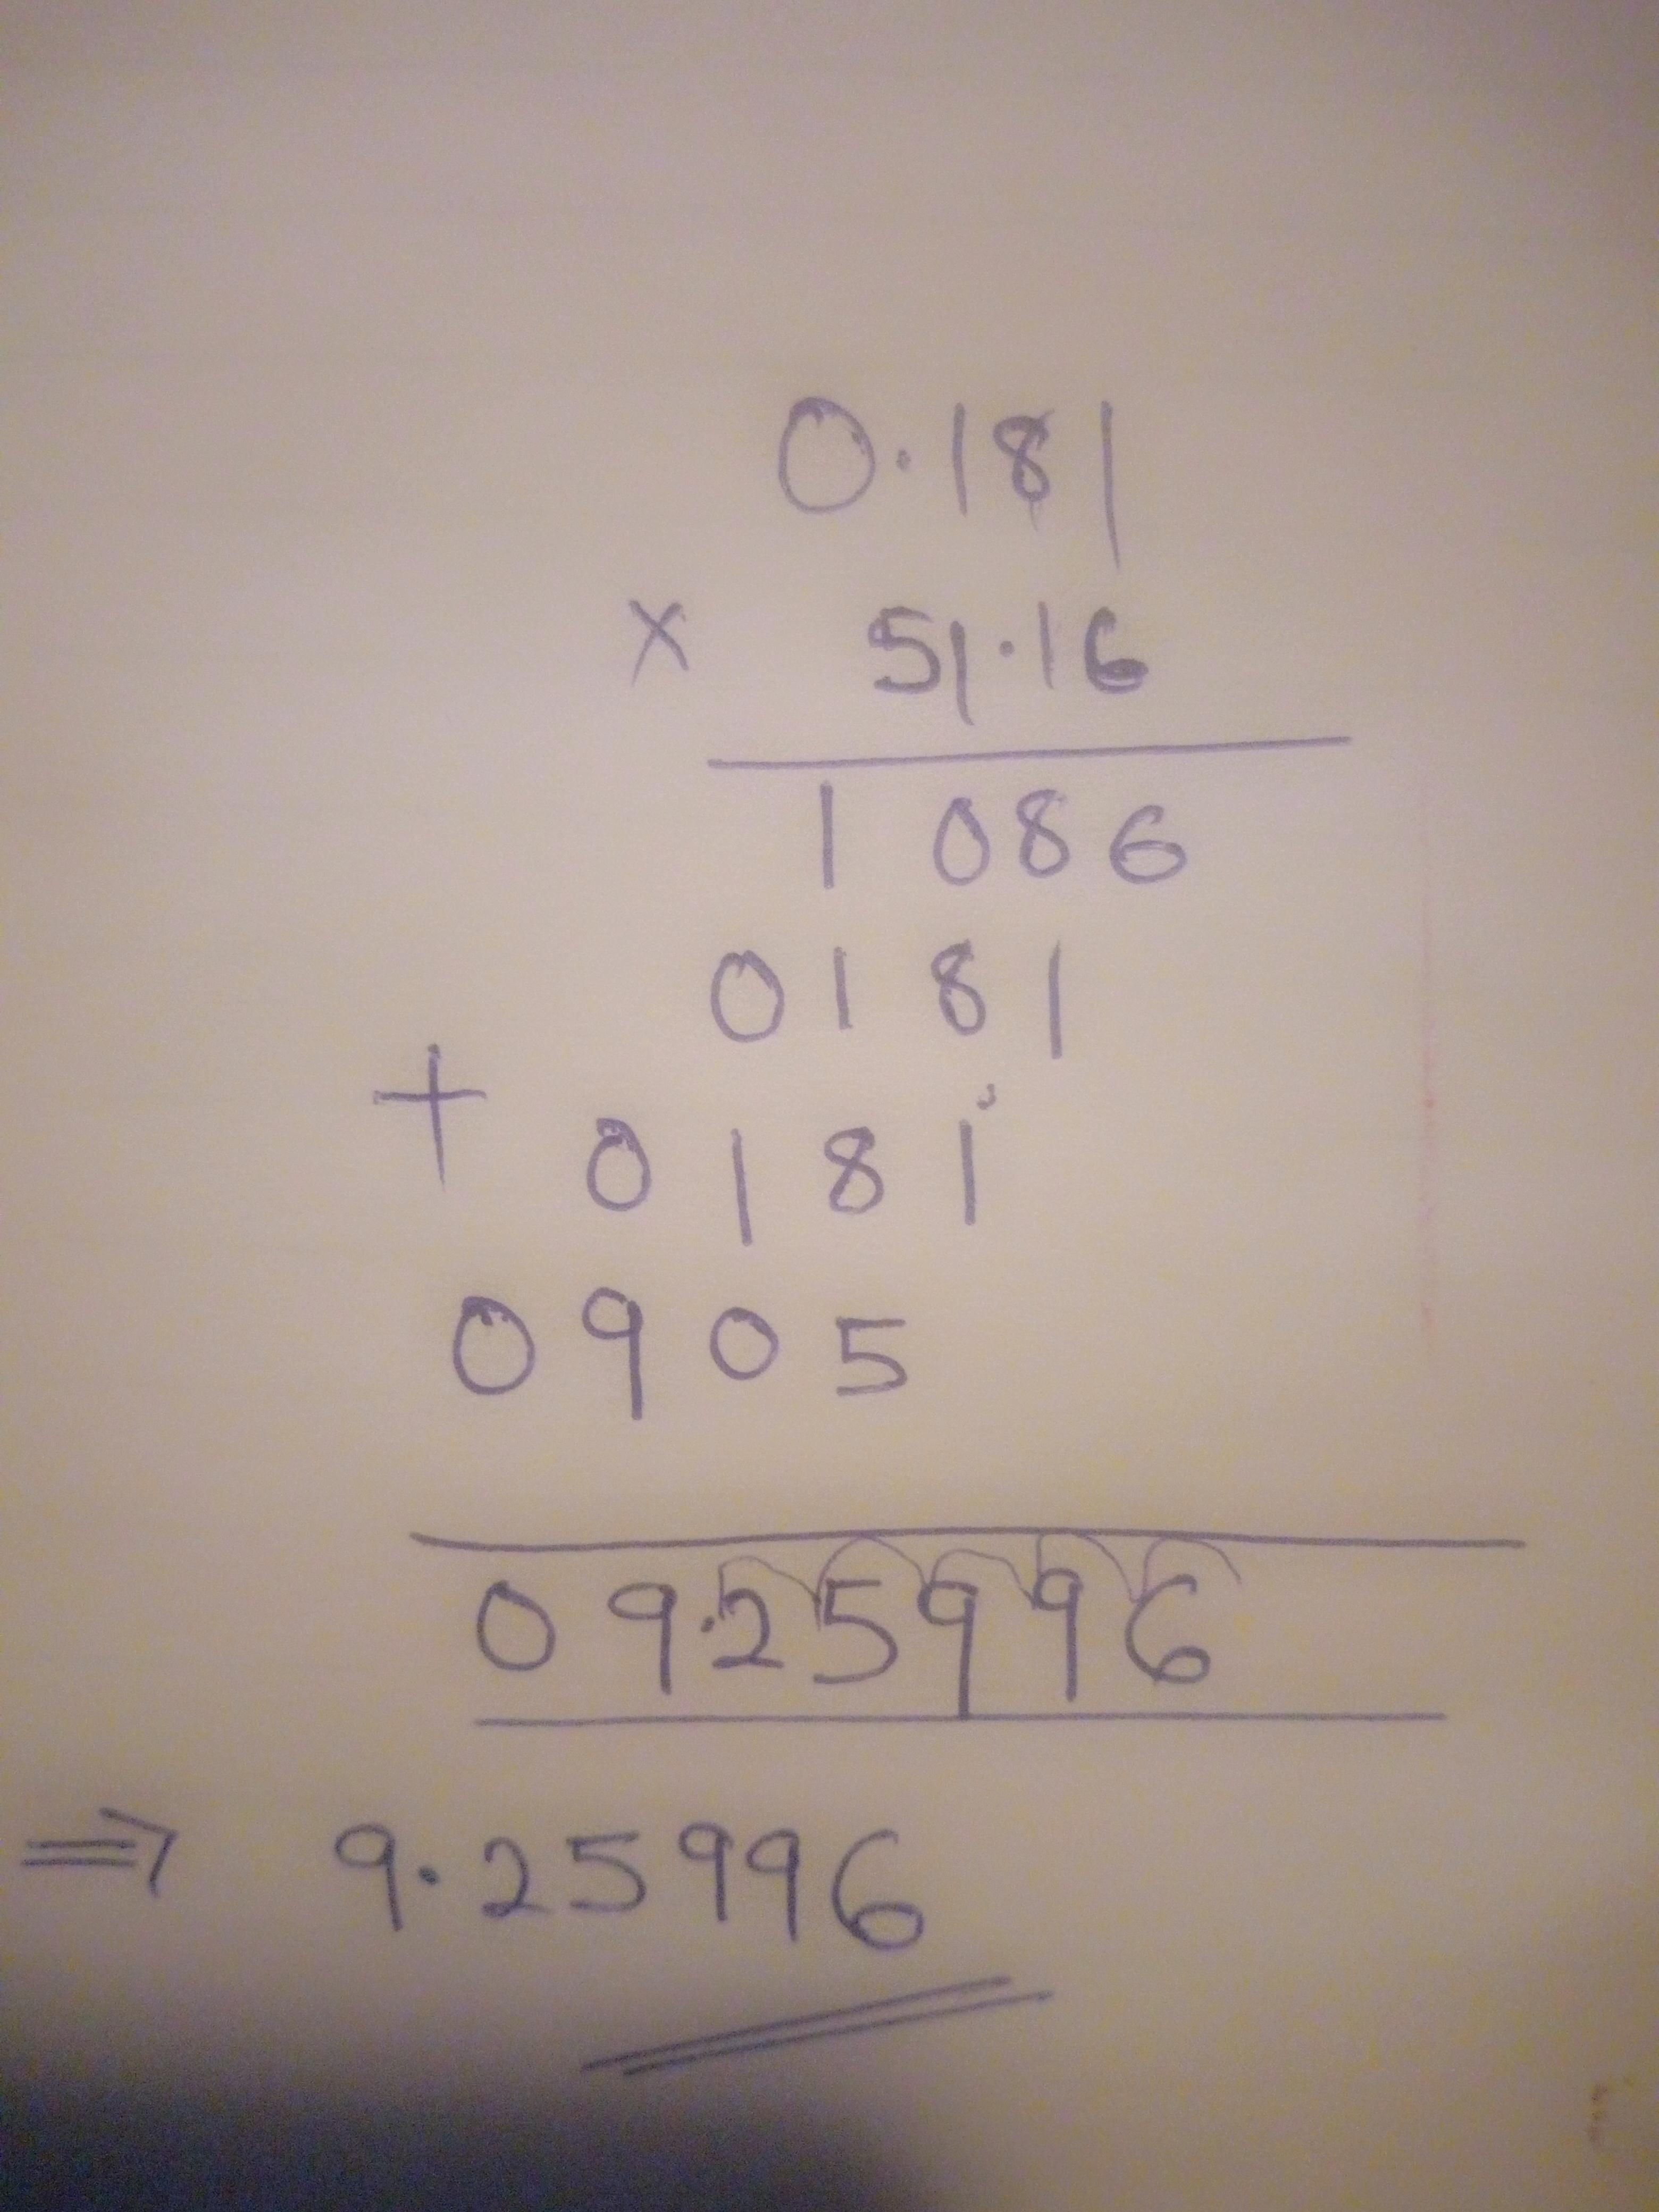 0.181
× 51.16
1 086
0181
+ 0181
0905
09.25996
⇒ 9.25996